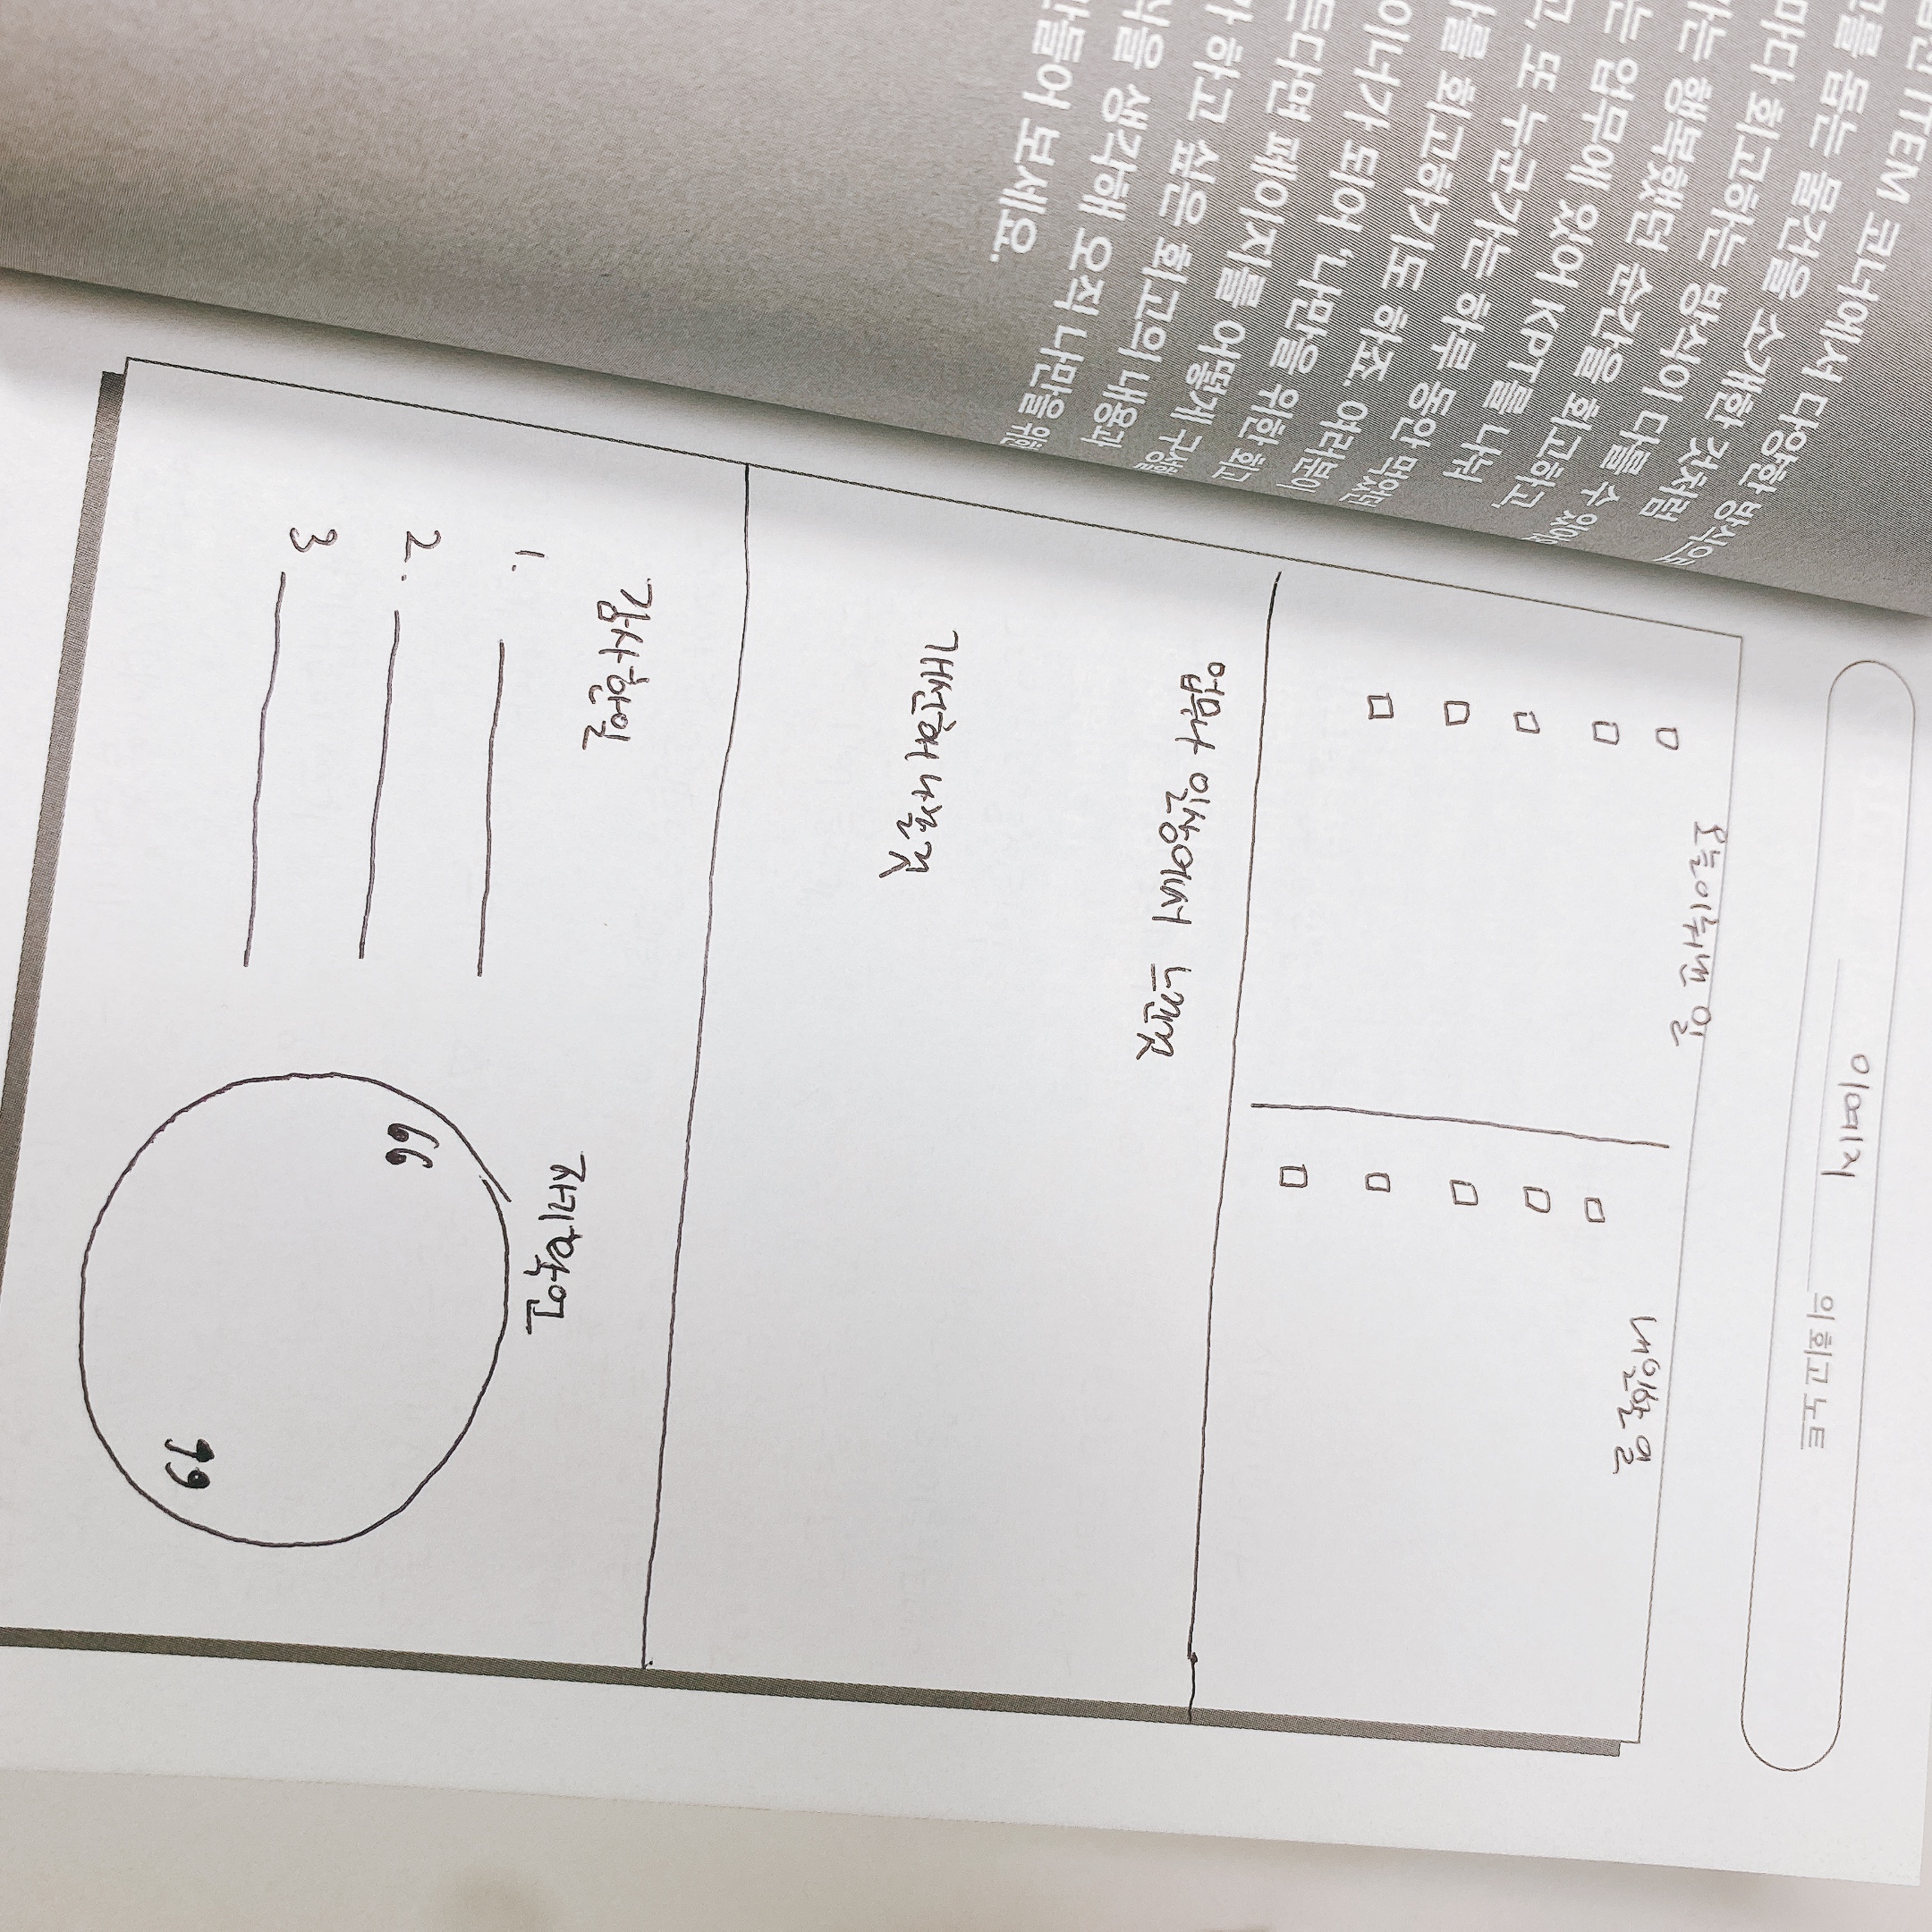 ITEM 코너에서 다양한 방식의
돕는 물건을 소개한 것처럼
마다 회고하는 방식이 다를 수 있어요
행복했던 순간을 회고하고,
는 업무에 있어 KPT를 나눠
고, 또 누군가는 하루 동안 먹었던
를 회고하기도 하죠. 여러분이
이너가 되어 '나만을 위한 회고
든다면 페이지를 어떻게 구성할
가 하고 싶은 회고의 내용과
식을 생각해 오직 나만을 위한
만들어 보세요.
이예지 의 회고 노트
오늘 이뤄낸 일
내일 할 일
업무나 일상에서 느낀 것
개선해 나갈 것
감사한 일
1.
2.
3
자기확언
“
”